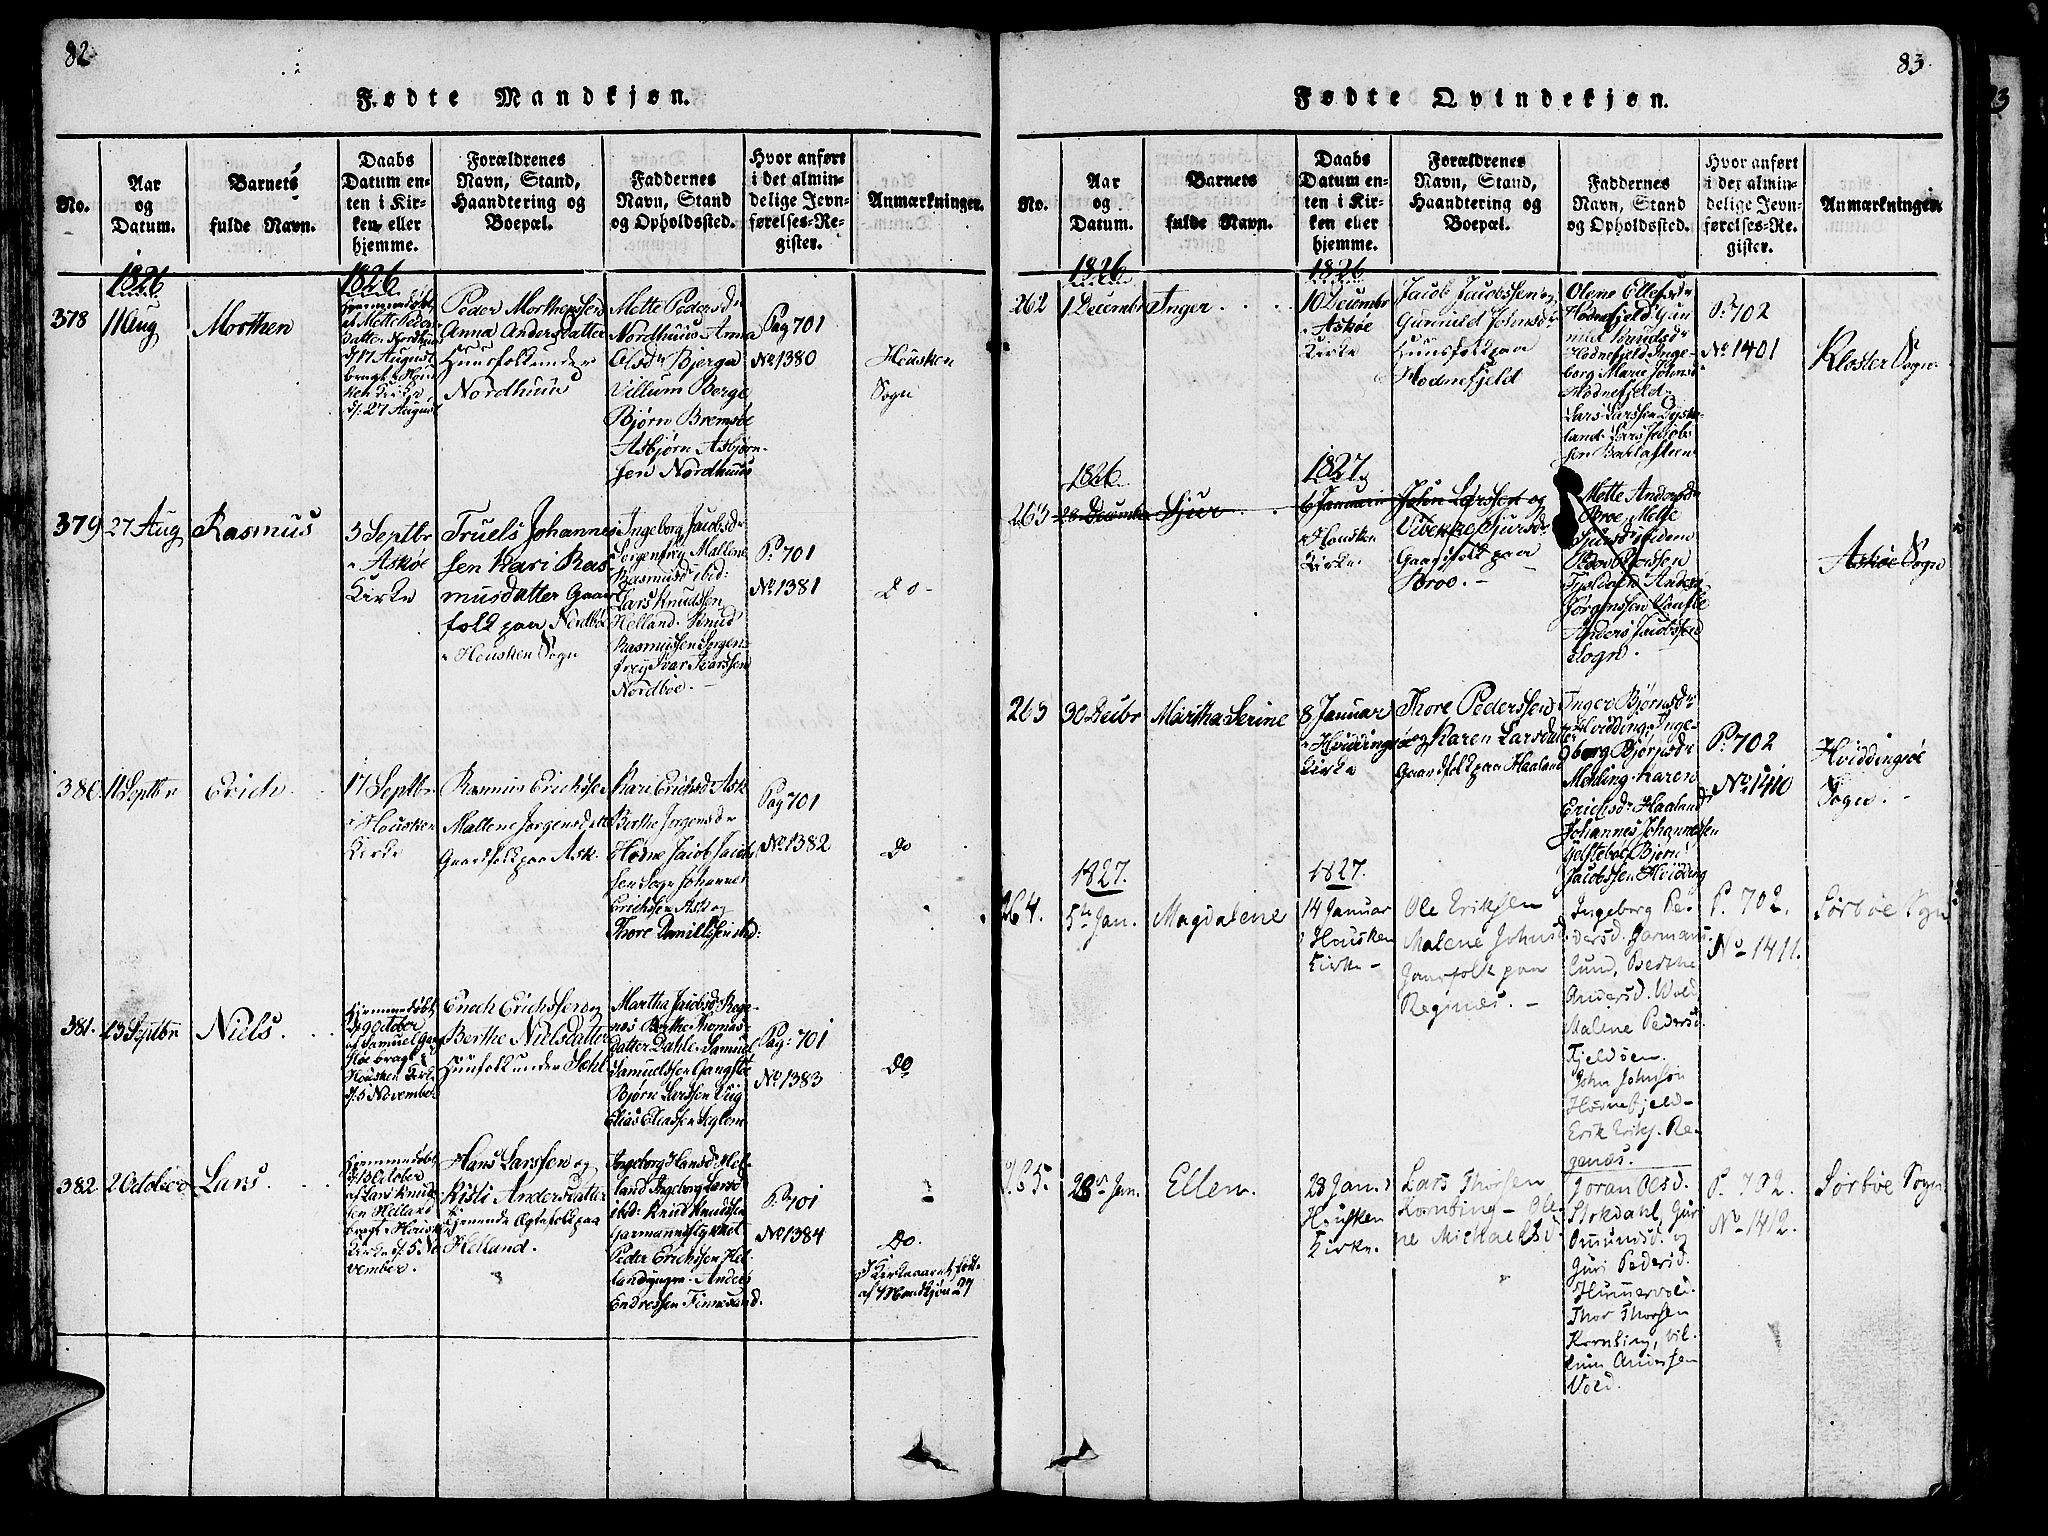 82
Fødte Mandkjøn.
No.
Aar
og
Datum.
Barnets
fulde Navn.
Daabs
Datum en-
ten i Kir-
ken eller
hjemme.
Forældrenes
Navn, Stand,
Haandtering og
Boepæl.
Faddernes
Navn, Stand
og Opholdssted.
Hvor anført
i det almin-
delige Jevn-
førelses-Re-
gister.
Anmærkninger.
1826
1826
378
11 Aug
Morthen
Hjemmedøbt
af Mette Peders
datter Nordhuus
d. 17 August
bragt i Hous
ken Kirke
d. 27 August
Peder Morthenssen
Anna Andersdatter
Huusfolk under
Nordhuus
Mette Pedersdr
Nordhuus Anna
Olsdr Bjerga
Villum Berge
Bjørn Bremsøe
Asbjørn Asbjørn-
sen Nordhuus
Pag 701
No 1380
Housken
Sogn
379
27 Aug
Rasmus
3 Septbr
i Askøe
Kirke
Truels Johannes
sen Kari Ras-
musdatter Gaard
folk paa Nordbøe
i Housken Sogn
Ingeborg Jacobsdr
Sorgenfrey Mallene
Rasmusdr ibid:
Lars Knudssen
Helland. Knud
Rasmussen Sorgen-
frey Ivar Ivarssen
Nordbøe. -
P. 701
No 1381
Do -
380
11 Septbr
Erich
17 Septbr
i Housken
Kirke
Rasmus Erichssen
Mallene Jørgensdatt
Gaardfolk paa Ask.
Kari Erichsdr Ask
Berthe Jørgensdr
Hodne Jacob Jacob
sen Sogn Johannes
Erichssen Ask og
Thore Danielssen ibid:
Pag 701
No 1382
Do
381.
23 Septbr
Niels.
Hjemmedøbt
d 9 October
af Samuel Gang
støe bragt i
Housken Kirke
d. 5 November
Enoch Erichssen og
Berthe Nielsdatter
Huusfolk under Sæhl
Martha Jacobsdr Rege-
nes Berthe Thomas-
datter Dahle. Samuel
Samuelssen Gangstøe
Bjørn Larssen Viig
Elias Eliassen Seglem
Pag: 701
No 1383
Do
382
2 October
Lars.
Hjemmedøbt
d. 13 October
af Lars Knud
sen Helland
bragt i Housken
Kirke d. 5 No
vember.
Hans Larssen og
Kisti Andersdatter
tjenende Ægtefolk paa
Helland.
Ingeborg Hansdr Hel-
land Ingeborg Larsd
ibid: Knud Knudssen
Peder Erichssen Hel-
land yngre. Anders
Endressen Finnesand.
P. 701
No 1384
Do.
I Kirkeaaret født
af Mandkjøn 27
83.
Fødte Qvindekjøn.
No.
Aar
og
Datum.
Barnets
fulde Navn.
Daabs
Datum en-
ten i Kir-
ken eller
hjemme.
Forældrenes
Navn, Stand,
Haandtering og
Boepæl.
Faddernes
Navn, Stand
og Opholdssted.
Hvor anført
i det almin-
delige Jevn-
førelses-Re-
gister.
Anmærkninger.
1826
1826
262
1 Decembr
Inger
10 Decembr
i Askøe
Kirke
Jacob Jacobssen og
Gunnild Johnsdr
Huusfolk paa
Hodnefjeld
Olene Ellefsdr
Hodnefjeld Gun
nild Knudsdr
Hodnefjeld Inge-
borg Marie Johnsd
Hodnefjeld
Lars Larssen Dyske-
land Lars Jacobs
sen Bakkasteen
P. 702
No 1401
Kloster Sogn
1826
1827
263
28 Decembr
Sjur
6 Januarii
i Housken
Kirke
John Larssen og
Vibekke Sjursdr
Gaardfolk paa
Broe. -
Mette Andersdr
Broe. Mette
Sjursdr ibidem
Anders
Jørgenssen
Anders Jacobssen
Sogn.
Askøe Sogn
263
30 Decbr
Martha Serine
8 Januar
i Hviddingsøe
Kirke
Thore Pederssen
og Karen Larsdatter
Gaardfolk paa Haaland
Inger Bjørnsdr
Hvidding, Inge-
borg Bjørnsdr
Meling. Karen
Erichsdr Haaland
Johannes Johannessen
Gjelstebøe Bjørn
Jacobssen Hvidding
P. 702
No 1410
Hviddingsøe
Sogn. -
1827.
1827.
264.
5te Jan.
Magdalene
14 Januar
i Housken
Kirke -
Ole Eriksen
Malene Johnsd.
Gaarfolk paa
Regines. -
Ingeborg Pe-
dersd. Jarmans-
lund, Berthe
Andersd. Wold
Malene Pedersd.
Fjeldøen.
John Johnsøn
Hodnefjeld -
Erik Eriks. Re-
genæs.
P. 702.
No - 1411.
Sørbøe Sogn
265.
28de Jan.
Ellen.
28 Jan. i
Housken
Kirke.
Lars Thorsen
Kornbing - Ole-
ne Michaelsd.
Joran Olesd.
Stokdahl, Guri
Omundsd. og
Guri Pedersd.
Hummervold.
Thor Thorsen
Kornbing, Vil-
lum Anderssen
Vold.
P. 702.
No - 1412.
Sørbøe Sogn